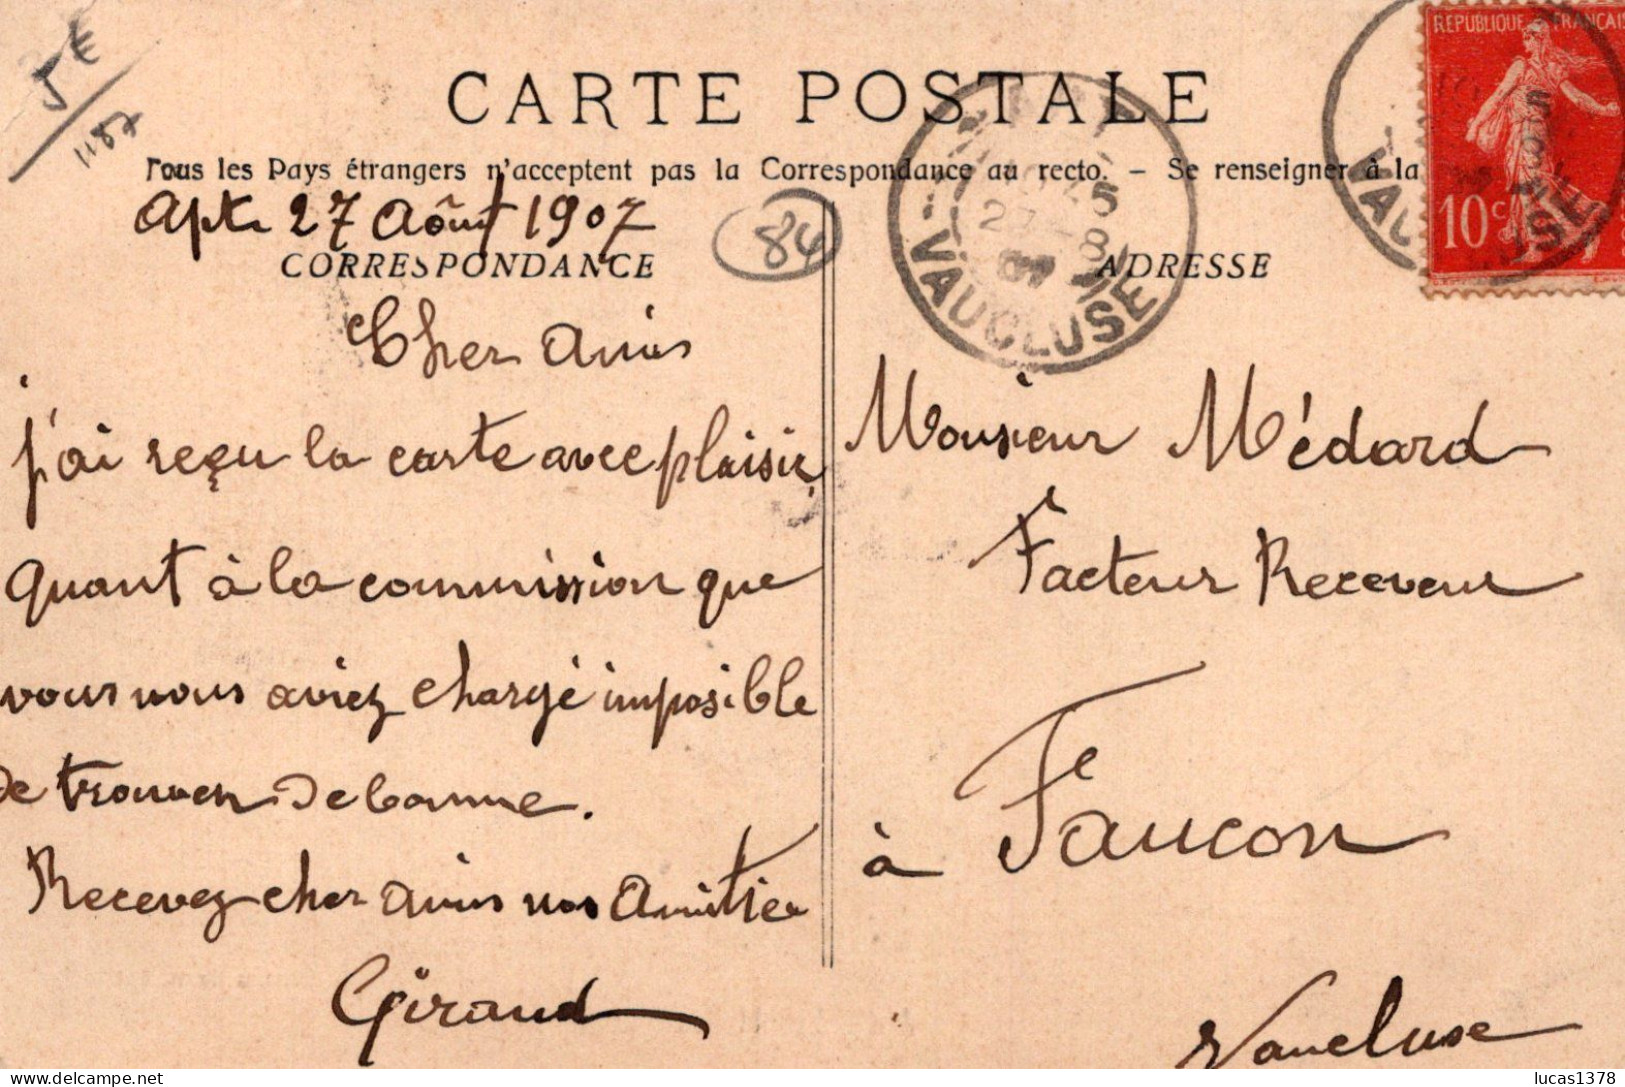 5€
1187
CARTE POSTALE
Tous les Pays étrangers n'acceptent pas la Correspondance au recto. – Se renseigner à la
Apt 27 Août 1907
84
CORRESPONDANCE
Cher amis
j'ai reçu la carte avec plaisir,
quant à la commission que
vous nous aviez chargé imposible
de trouver de bonne.
Recevez cher amis nos Amitier
Giraud
ADRESSE
Monsieur Médard
Facteur Receveur
à Faucon
Vaucluse
APT
27 -8
07
VAUCLUSE
REPUBLIQUE FRANÇAIS
10c
lucas1378